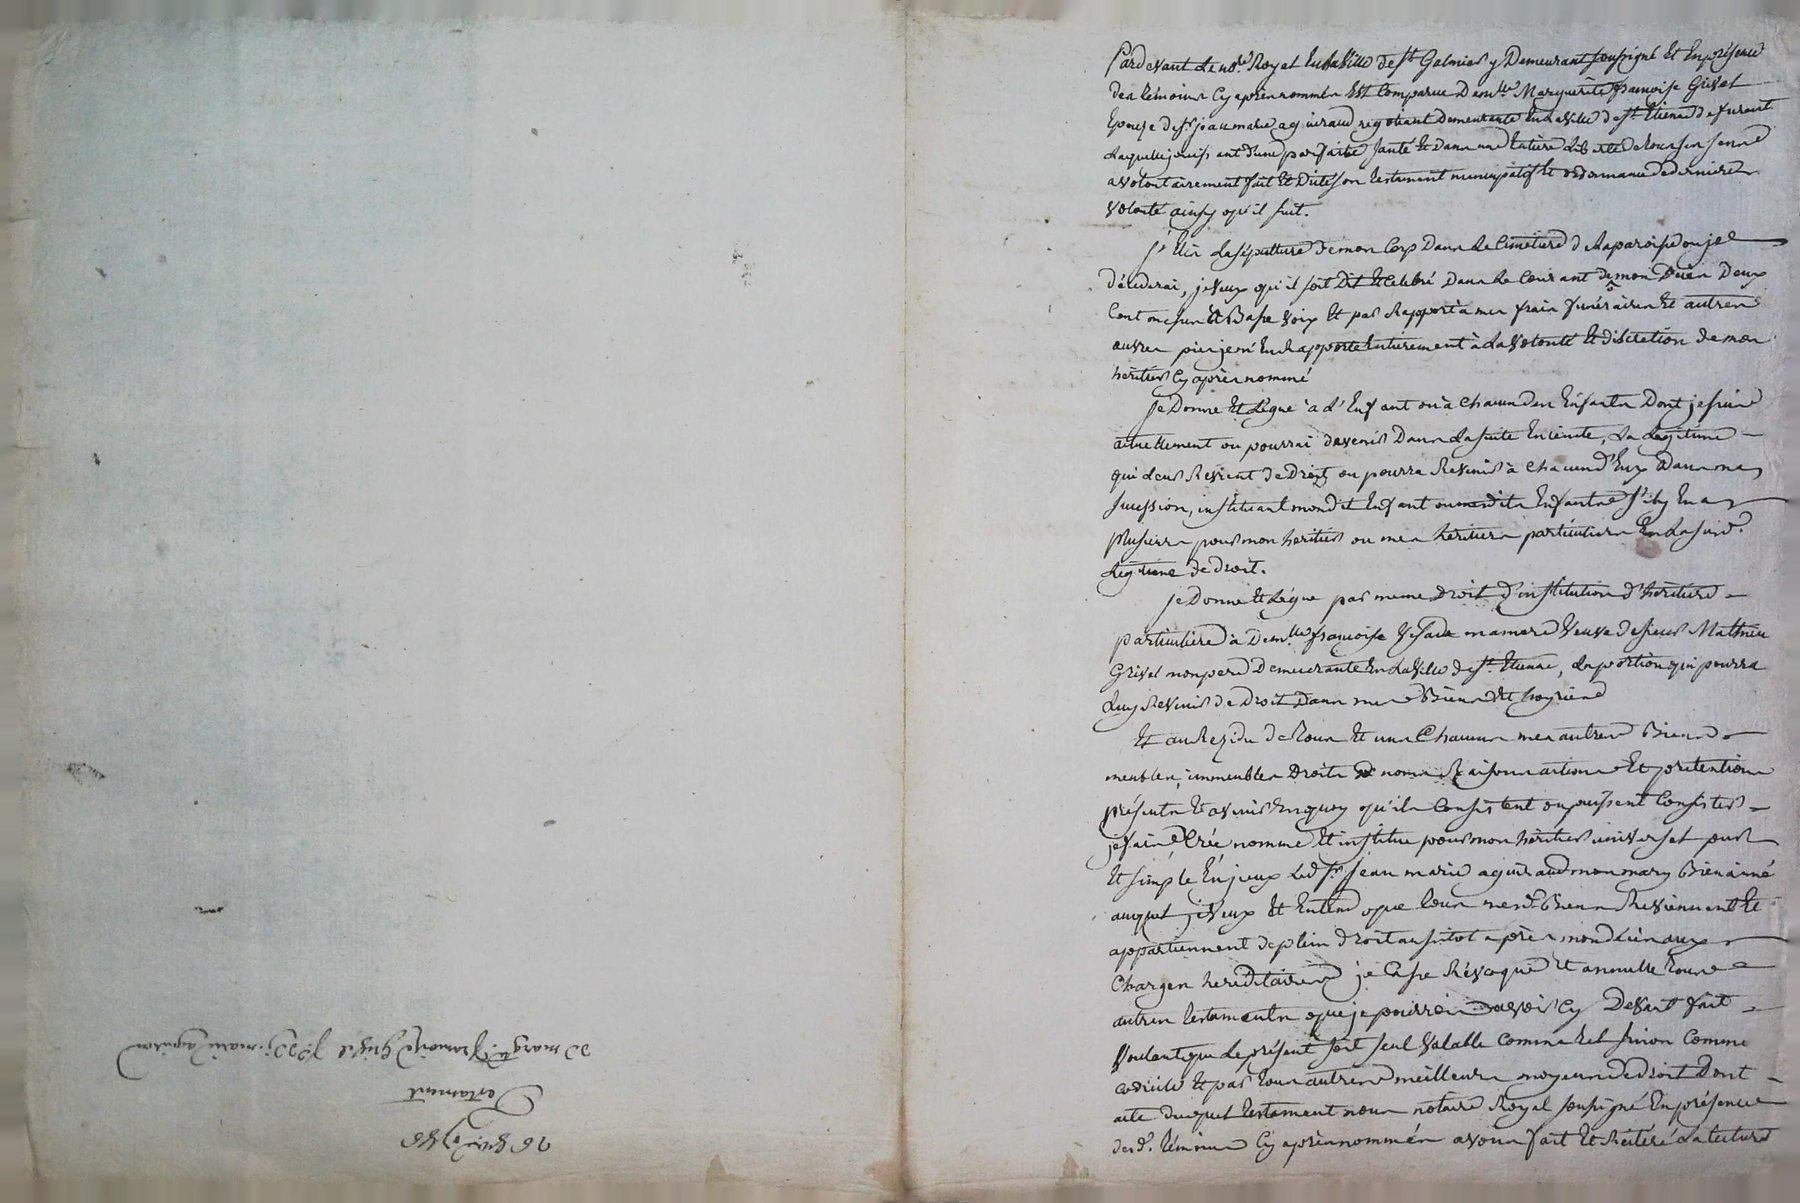 Pardevant Le no.re Royal En la Ville de St Galmier y Demeurant soussigné Et En présence
des témoins Cy après nommés Est Comparue Dem.lle Marguerite francoise Grivel
Epouse de Sr jean marie aguiraud negotiant demeurante En la Ville de St Etienne de furant
Laquelle jouissant d'une parfaite santé Et Dans une Entiere Liberté de tous ses sens
a volontairement fait Et Dicté son testament nuncupatif Et ordonnance de derniere
Volonté ainsy qu'il suit.
J'Elis La sépulture de mon Corp Dans Le Cimetiere de La paroisse ou je
décederai, je Veux qu'il soit Dit Et Celebré Dans Le Courant de mon Deces Deux
Cent messes à Basse Voix Et par Rapport à mes frais funéraires Et autres
œuvres pies je m'En Rapporte Entierement à La Volonté Et discretion de mon
heritier Cy après nommé
Je Donne Et Légue à L'Enfant ou à Chacun des Enfants Dont je suis
actuellement ou pourrai devenir Dans La suite Enceinte, La Légitime
qui Leur Revient de Droit ou pourra Revenir à Chacun d'Eux Dans ma
succession, instituant mon dit Enfant ou mesdits Enfants s'il y En a
plusieurs pour mon heritier ou mes heritiers particuliers En La susd.e
Légitime de droit.
je Donne Et Légue par meme Droit d'institution d'héritiere
particuliere à Dem.lle francoise mamere Veuve de sieur Mathieu
Grivel mon pere Demeurante En La Ville de St Etienne, La portion qui pourra
Luy Revenir de Droit Dans mes Biens Et hoyrie
Et au Rezidu de tous Et uns Chacuns mes autres Biens
meubles, immeubles Droits noms Raisons actions Et pretentions
présents Et avenir En quoy qu'ils Consistent ou puissent Consister
je fais Crée nomme Et institue pour mon héritier universel pur
Et simple Led Sr Jean marie aguiraud mon mary Bien aimé
auquel je Veux Et Entend que tous mesd. Biens Reviennent Et
appartiennent de plein droit aussitot après mon deces aux
Charges hereditaires je Casse Révoque Et annulle tous
autres testaments que je pourrois avoir Cy Devant fait
Voulant que Le présent soit seul Valable comme tel sinon Comme
codicile Et par tous autres meilleurs moyens de droit Dont
acte duquel testament nous notaire Royal soussigné En présence
desd. témoins Cy après nommés avons fait Et Réitéré La Lecture
Testament